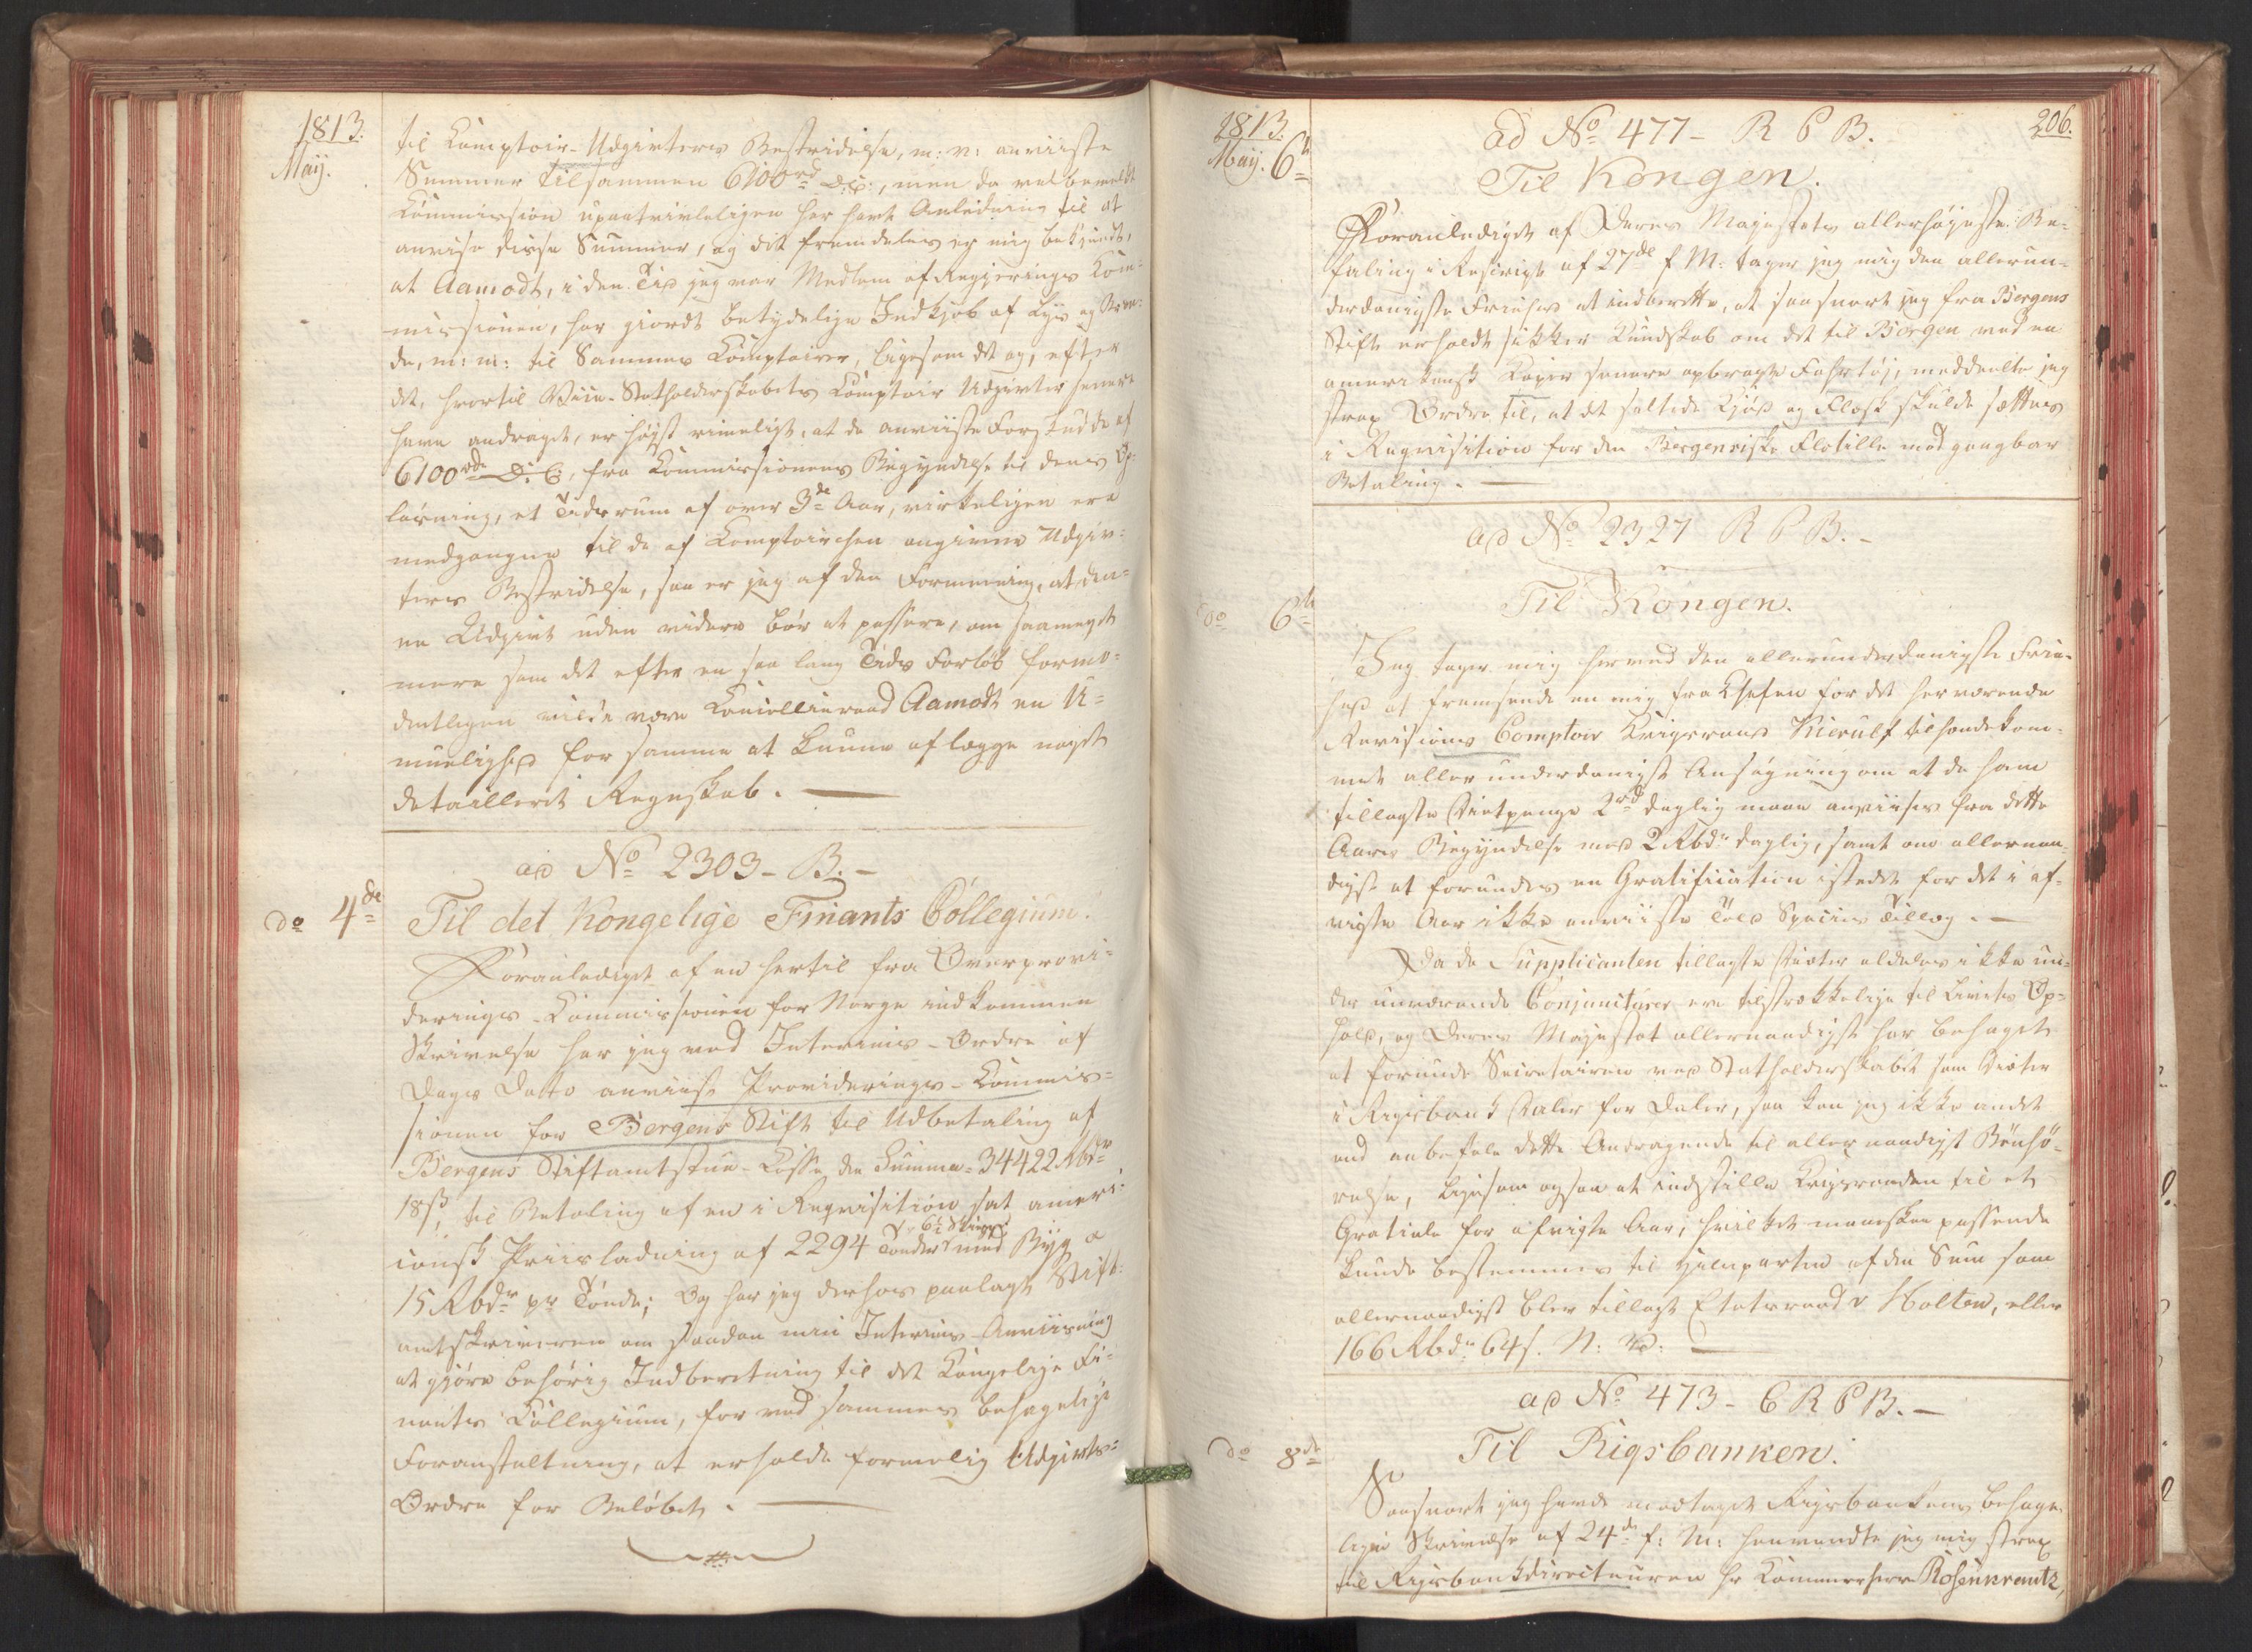 1813.
Maij.
til Comptoir-Udgivters Bestridelse, m: v: anviiste
Summer tilsammen 6100rd D: C:, men da velbemeldte
Commission upaatvivleligen har havt Anledning til at
anvise disse Summer, og det fremdeles er mig bekjendt,
at Aamodt, i den Tid jeg var Medlem af Regjerings Com-
missionen, har giordt betydelige Indkjøb af Lys og Bræn-
de, m: m: til Sammes Comptoirer, ligesom det og, efter
det, hvortil Vice-Statholderskabets Comptoir Udgivter senere
have andraget, er høist rimeligt, at de anviiste Forskudde af
6100rdr D. C., fra Commissionens Begyndelse til dens Op-
løsning, et Tidsrum af over 3de Aar, virkeligen ere
medgangne til de af Comptoirchen angivne Udgiv-
ters Bestridelse, saa er jeg af den Formening, at den-
ne Udgivt uden videre bør at passere, om saameget
mere som det efter en saa lang Tids Forløb formo-
dentligen vilde være Cancellieraad Aamodt en U-
muelighed for samme at kunne aflægge noget
detailleret Regnskab.
ad No 2303 - B.
do 4de
Til det Kongelige Finants Collegium.
Foranlediget af en hertil fra Overprovi-
derings-Commissionen for Norge indkommen
Skrivelse har jeg ved Interims-Ordre af
Dags Dato anviist Proviederings-Commis-
sionen for Bergens Stift til Udbetaling af
Bergens Stiftamtstue-Casse den Summa 34422 Rbdr
18s, til Betaling af en i Reqvisition sat ameri-
cansk Priisladning af 2294 Tønder med Byg a
15 Rbdr pr Tønde; Og har jeg derhos paalagt Stift-
amtskriveren om saadan min Interims-Anviisning
at gjøre behørig Indberetning til det Kongelige Fi-
nants Collegium, for ved sammes behagelige
Foranstaltning, at erholde formelig Udgivts-
Ordre for Beløbet.
1813.
Maij. 6te
206.
ad No 477 - R P B.
Til Kongen.
Foranlediget af Deres Majestets allerhøjeste Be-
faling i Rescript af 27de f. M: tager jeg mig den allerun-
derdanigste Friehed at indberette, at saasnart jeg fra Bergens
Stift erholdt sikker Kundskab om det til Bergen ved en
amerikansk Kaper senere opbragte Fahrtøj, meddeelte jeg
strax Ordre til, at det saltede Kjød og Flesk skulde sættes
i Reqvisition for den Bergensiske Flotille mod gangbar
Betaling.
ad No 2327 R P B.
do 6te
Til Kongen.
Jeg tager mig herved den allerunderdanigste Frie-
hed at fremsende en mig fra Chefen for det herværende
Revisions Comptoir Krigsraad Kierulf tilhændekom-
met allerunderdanigst Ansøgning om at de ham
tillagte Diætpenge 2rd daglig maae anviises fra dette
Aars Begyndelse med 2 Rbdr daglig, samt om allernaa-
digst at forundes en Gratification istedet for det i af-
vigte Aar ikke anviiste Told Species Tillæg.
Da de Supplicanten tillagte Diæter aldeles ikke un-
der nuværende Conjuncturer ere tilstrækkelige til Livets Op-
hold, og Deres Majestæt allernaadigst har behaget
at forunde Secretairen ved Statholderskabet sem Diæter
i Rigsbank Daler for Daler, saa kan jeg ikke andet
end anbefale dette Andragende til allernaadigst Bønhø-
relse, ligesom ogsaa at indstille Krigsraaden til et
Gratiale for afvigte Aar, hvilket maaskee passende
kunde bestemmes til Halvparten af den Sum som
allernaadigst blev tillagt Etatsraad v Holten, eller
166 Rbdr 64s. N: V:
ad No 473 - C R P B.
do 8de
Til Rigsbanken.
Saasnart jeg havde modtaget Rigsbankens behage-
lige Skrivelse af 24de f: M: henvendte jeg mig strax
til Rigsbankdirecteuren Hr Kammerherre Rosenkrantz,